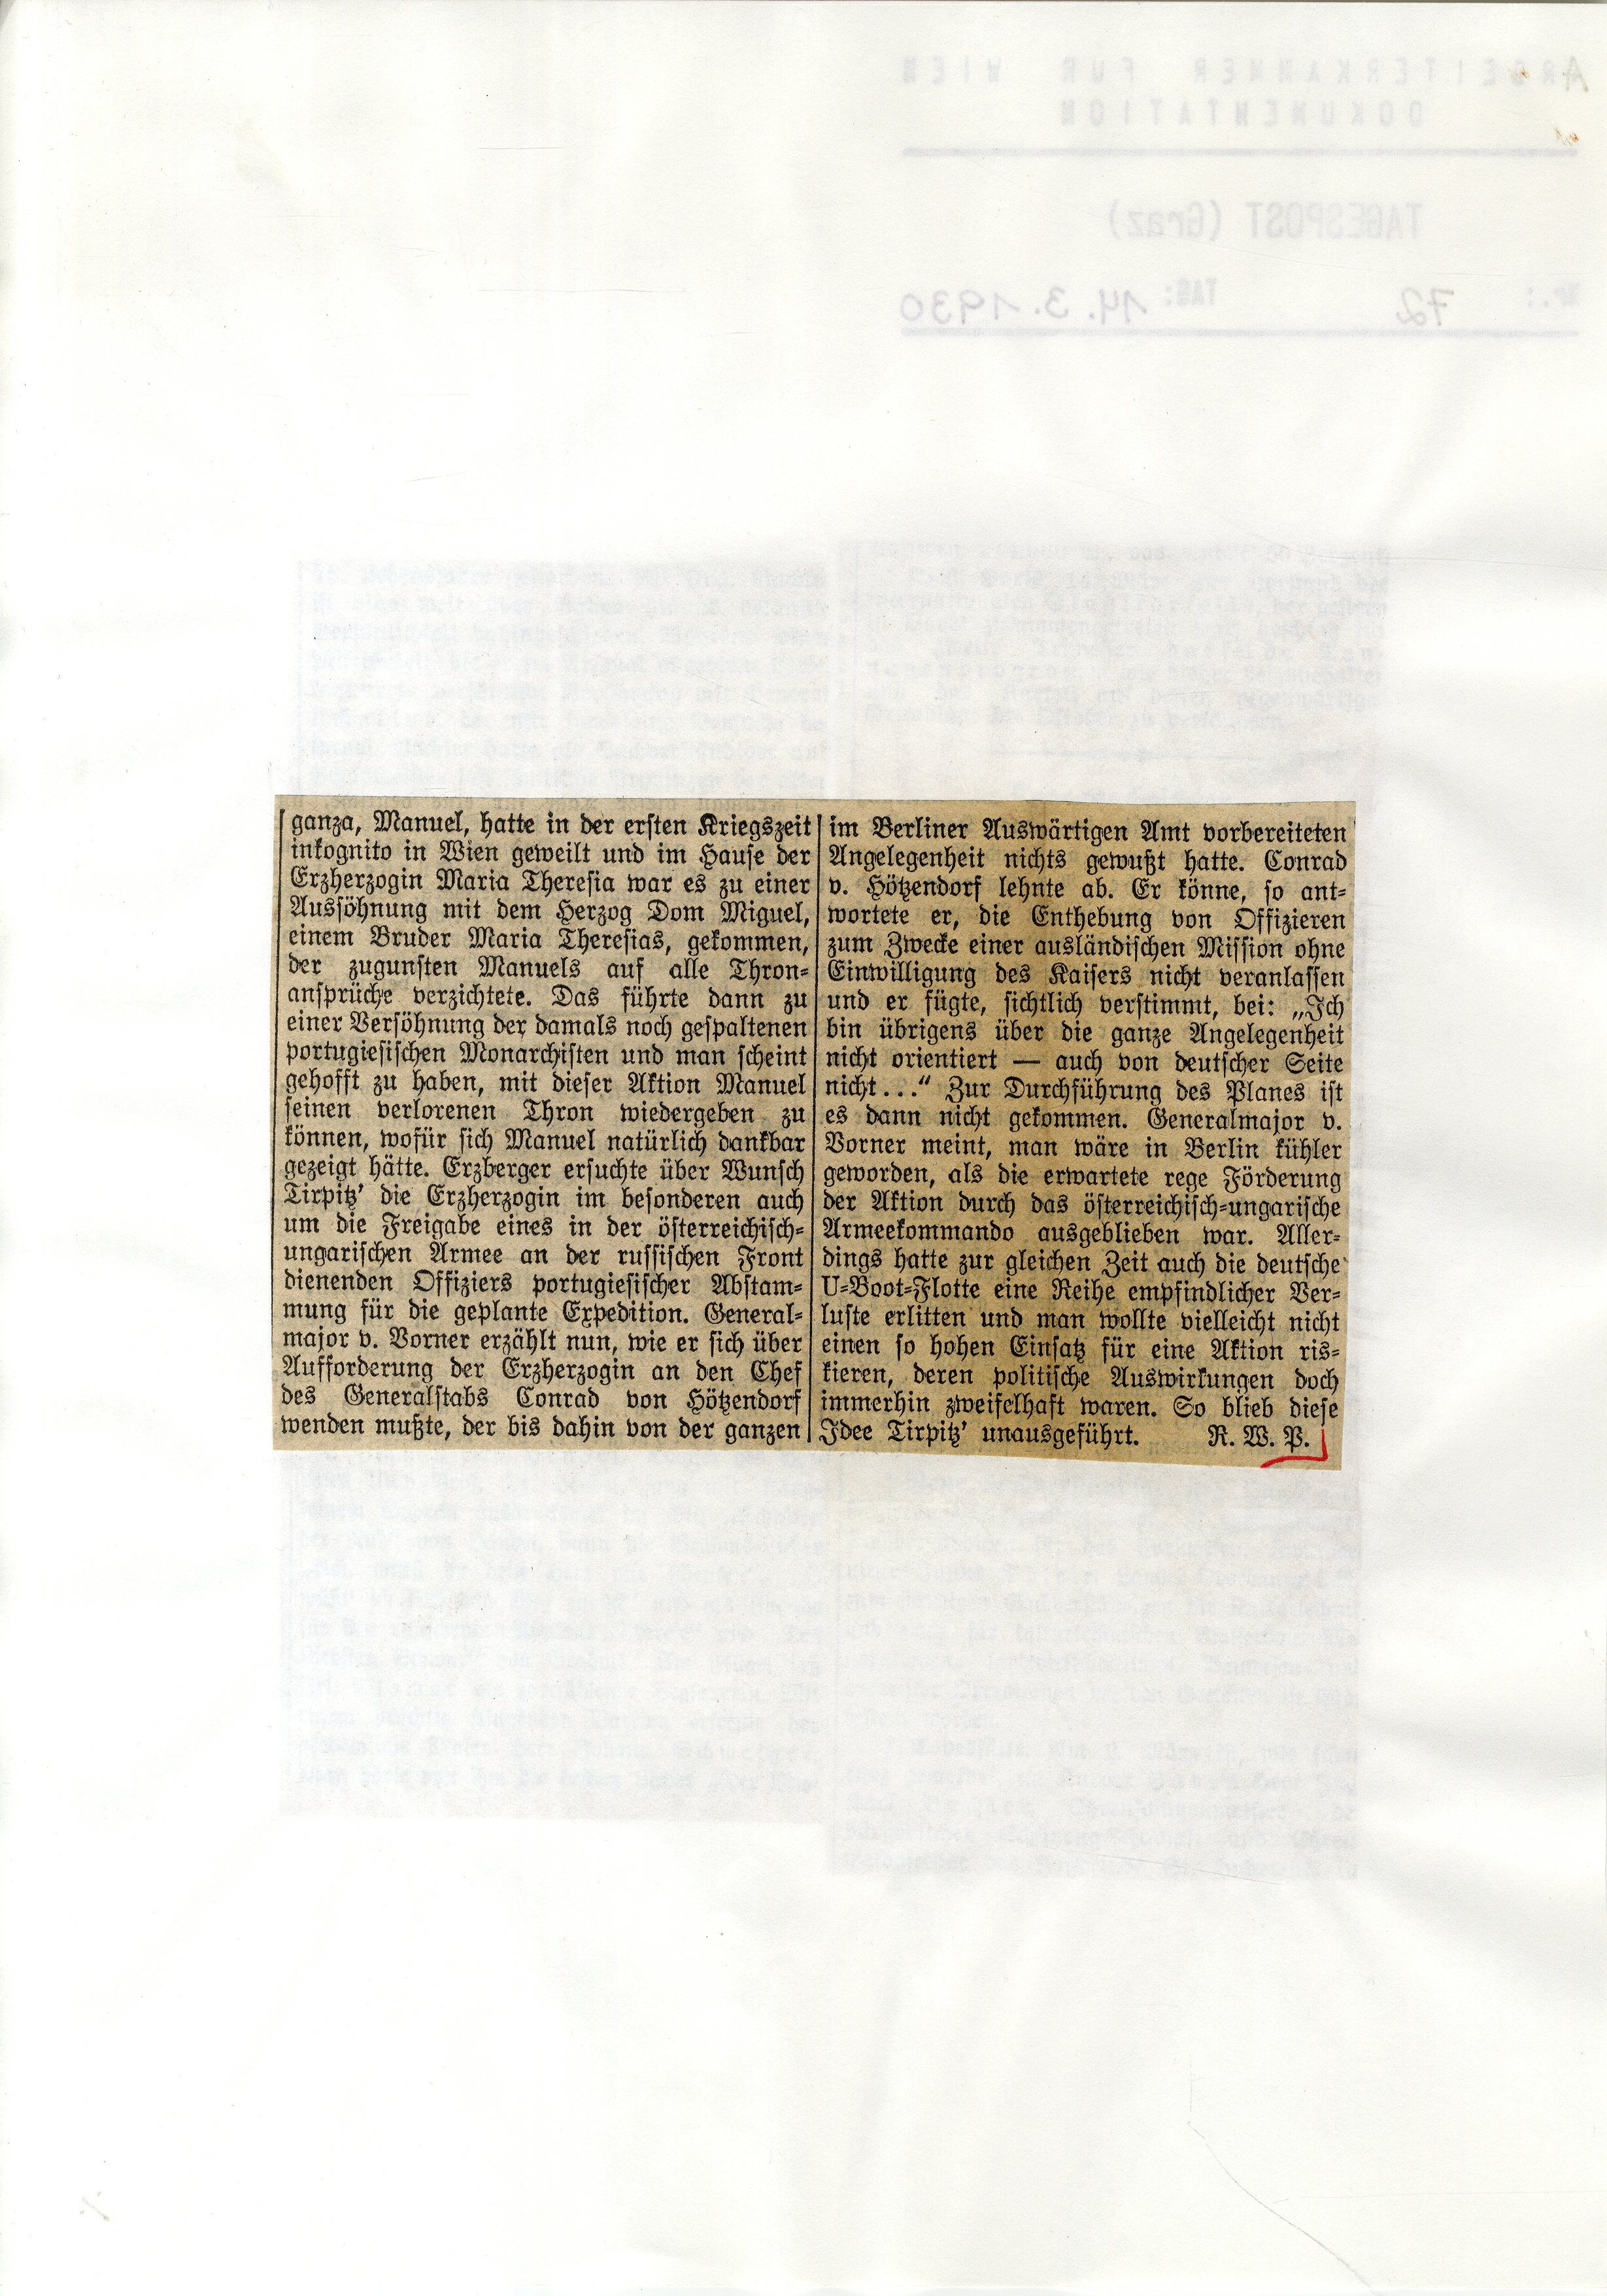 ganza, Manuel, hatte in der ersten Kriegszeit
inkognito in Wien geweilt und im Hause der
Erzherzogin Maria Theresia war es zu einer
Aussöhnung mit dem Herzog Dom Miguel,
einem Bruder Maria Theresias, gekommen,
der zugunsten Manuels auf alle Thron-
ansprüche verzichtete. Das führte dann zu
einer Versöhnung der damals noch gespaltenen
portugiesischen Monarchisten und man scheint
gehofft zu haben, mit dieser Aktion Manuel
seinen verlorenen Thron wiedergeben zu
können, wofür sich Manuel natürlich dankbar
gezeigt hätte. Erzberger ersuchte über Wunsch
Tirpitz' die Erzherzogin im besonderen auch
um die Freigabe eines in der österreichisch-
ungarischen Armee an der russischen Front
dienenden Offiziers portugiesischer Abstam-
mung für die geplante Expedition. General-
major v. Vorner erzählt nun, wie er sich über
Aufforderung der Erzherzogin an den Chef
des Generalstabs Conrad von Hötzendorf
wenden mußte, der bis dahin von der ganzen
im Berliner Auswärtigen Amt vorbereiteten
Angelegenheit nichts gewußt hatte. Conrad
v. Hötzendorf lehnte ab. Er könne, so ant-
wortete er, die Enthebung von Offizieren
zum Zwecke einer ausländischen Mission ohne
Einwilligung des Kaisers nicht veranlassen
und er fügte, sichtlich verstimmt, bei: „Ich
bin übrigens über die ganze Angelegenheit
nicht orientiert — auch von deutscher Seite
nicht..." Zur Durchführung des Planes ist
es dann nicht gekommen. Generalmajor v.
Vorner meint, man wäre in Berlin kühler
geworden, als die erwartete rege Förderung
der Aktion durch das österreichisch-ungarische
Armeekommando ausgeblieben war. Aller-
dings hatte zur gleichen Zeit auch die deutsche
U-Boot-Flotte eine Reihe empfindlicher Ver-
luste erlitten und man wollte vielleicht nicht
einen so hohen Einsatz für eine Aktion ris-
kieren, deren politische Auswirkungen doch
immerhin zweifelhaft waren. So blieb diese
Idee Tirpitz' unausgeführt. R. W. P.
ARBEITERKAMMER FÜR WIEN
DOKUMENTATION
TAGESPOST (Graz)
Nr.: 72 TAG: 14. 3. 1930